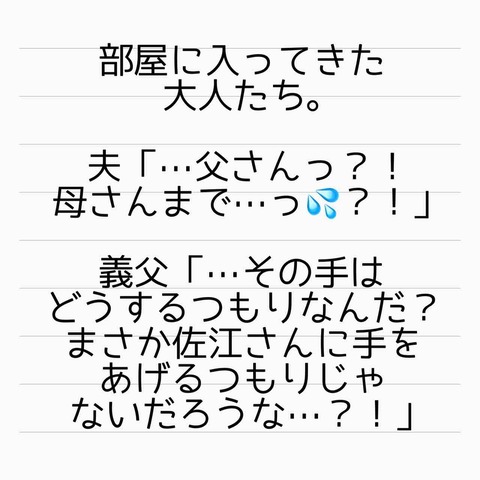 部屋に入ってきた
大人たち。
夫「…父さんっ？！
母さんまで…っ💦？！」
義父「…その手は
どうするつもりなんだ？
まさか佐江さんに手を
あげるつもりじゃ
ないだろうな…？！」